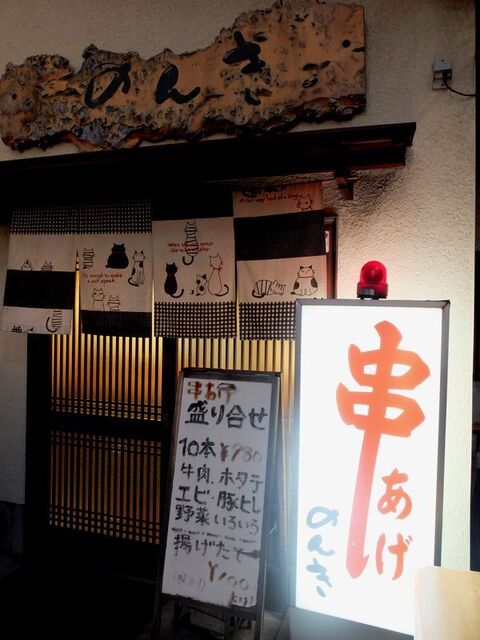 のんき
When
串あげ
盛り合せ
10本¥780
牛肉、ホタテ
エビ・豚ヒレ
野菜いろいろ
揚げたて
¥100
串あげ
のんき